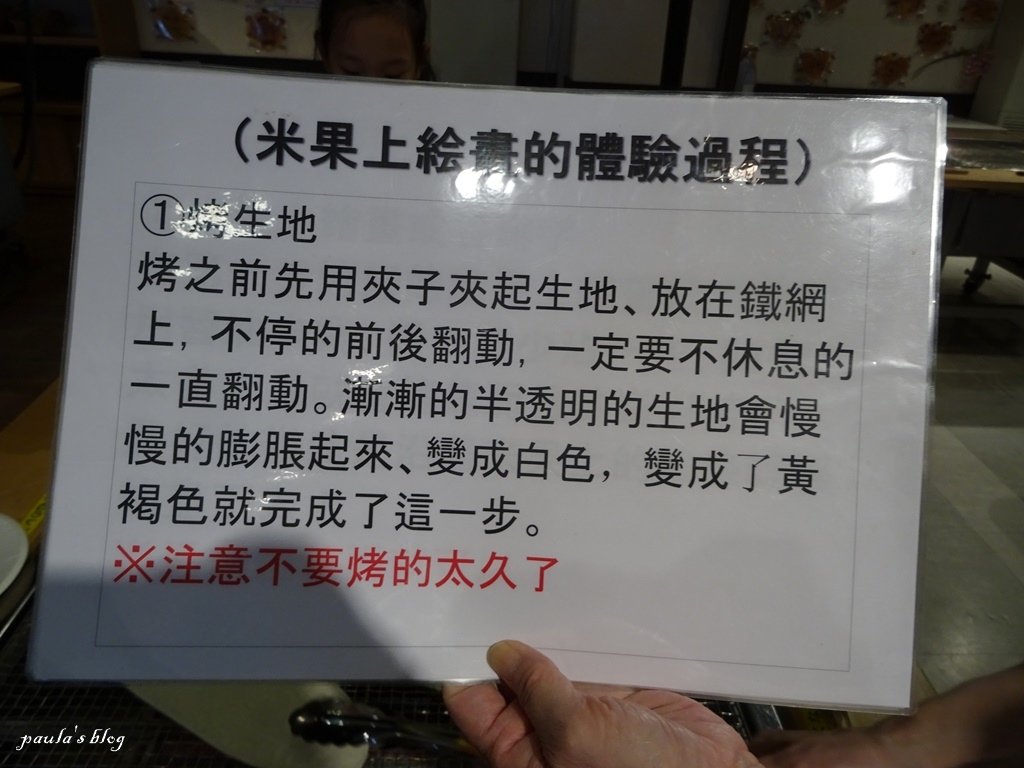 (米果上絵畫的體驗過程)
①烤生地
烤之前先用夾子夾起生地、放在鐵網
上，不停的前後翻動，一定要不休息的
一直翻動。漸漸的半透明的生地會慢
慢的膨脹起來、變成白色，變成了黃
褐色就完成了這一步。
※注意不要烤的太久了
paula's blog